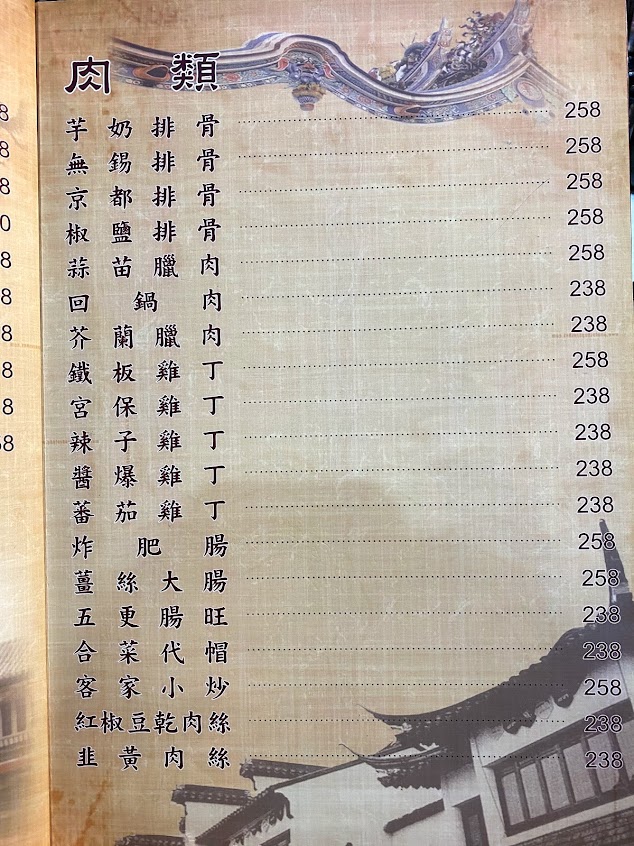 肉類
芋奶排骨 258
無錫排骨 258
京都排骨 258
椒鹽排骨 258
蒜苗臘肉 258
回鍋肉 238
芥蘭臘肉 238
鐵板雞丁 258
宮保雞丁 238
辣子雞丁 238
醬爆雞丁 238
蕃茄雞丁 238
炸肥腸 258
薑絲大腸 258
五更腸旺 238
合菜代帽 238
客家小炒 258
紅椒豆乾肉絲 238
韭黃肉絲 238